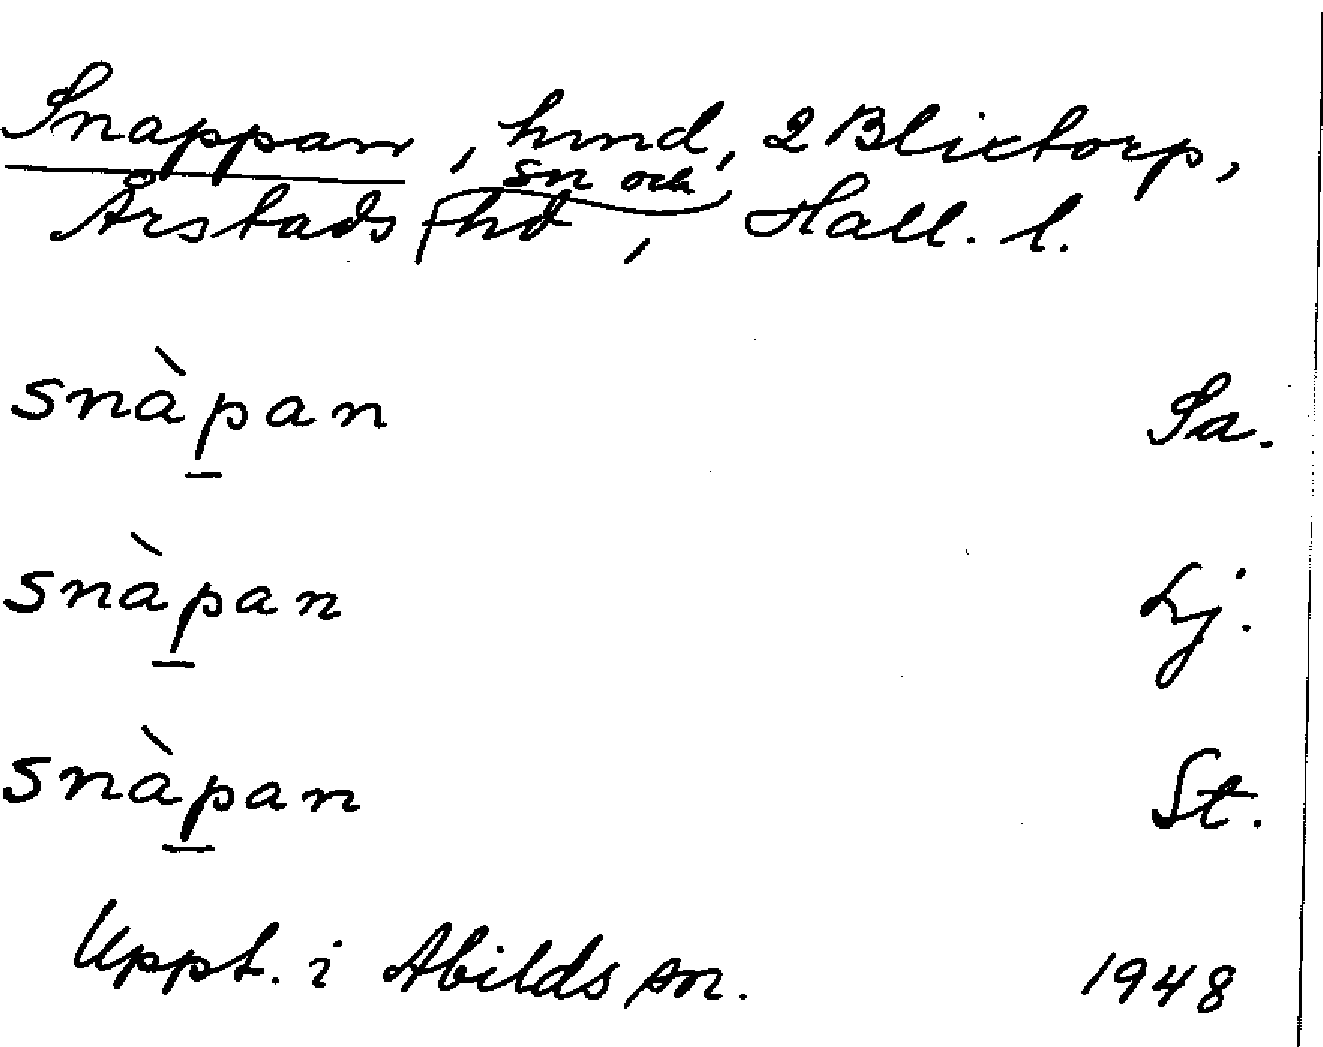 Snappan, hmd, 2 Blixtorp,
Årstads sn och hd, Hall. l.
snàpan Sa.
snàpan Lj.
snàpan St.
Uppt. i Abilds sn. 1948